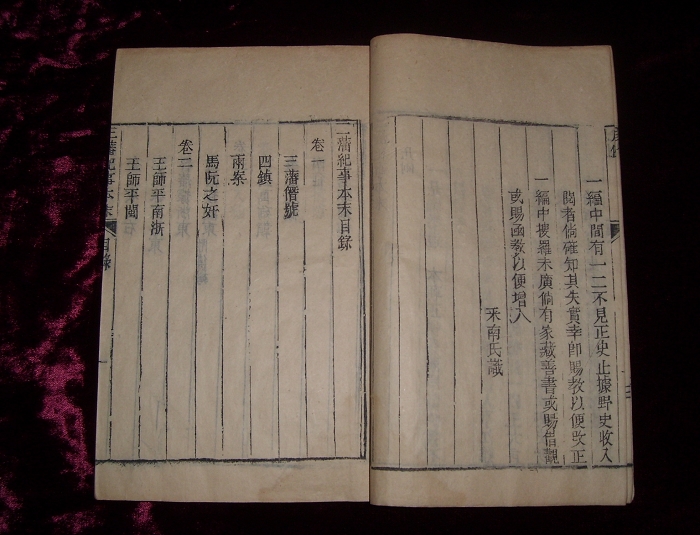 一編中間有一二不見正史止據野史收入
閱者倘確知其失實幸即賜教以便改正
一編中搜羅未廣倘有家藏善書或賜借觀
或賜函教以便增入
采南氏識
三藩紀事本末目錄
卷一
三藩僭號
四鎮
兩案
馬阮之奸
卷二
王師平南浙
王師平閩
三藩紀事本末
目錄